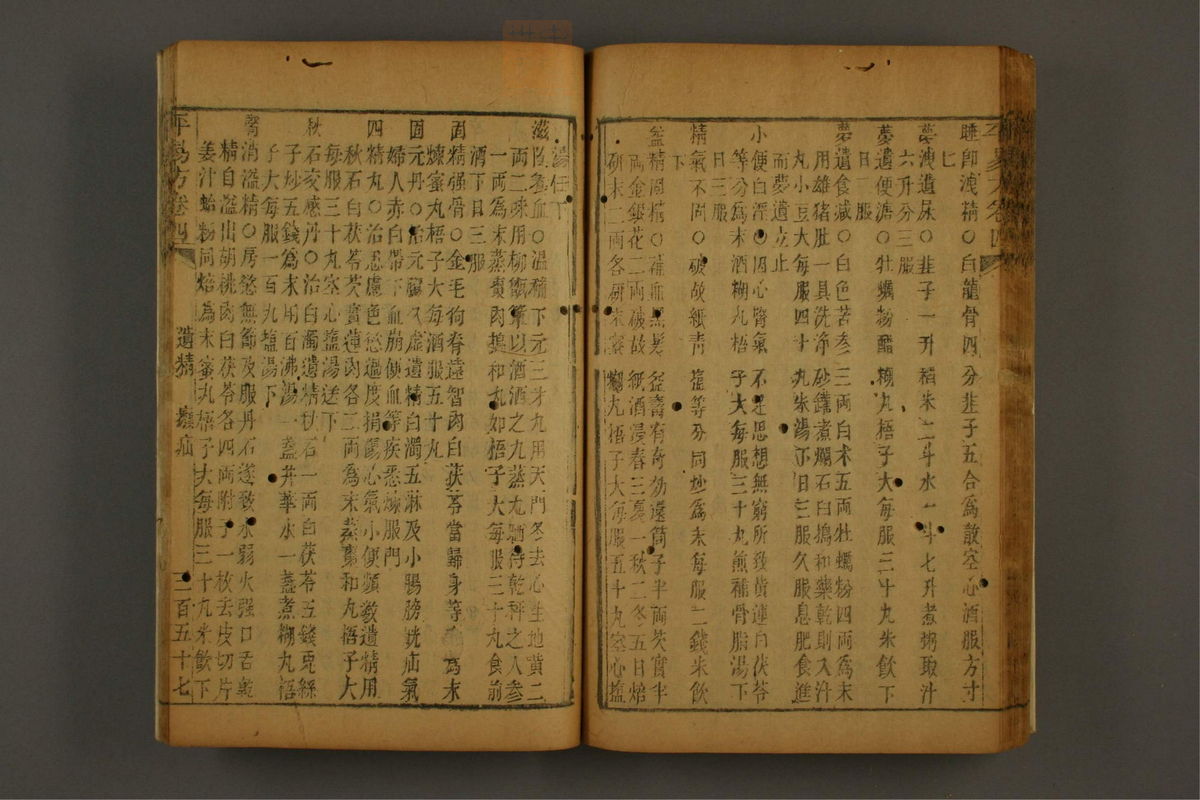 睡即洩精○白龍骨四分韭子五合爲散空心酒服方寸
匕
夢洩遺尿○韭子一升稻米二斗水一斗七升煮粥取汁
六升分三服
夢遺便溏○牡蠣粉醋糊丸梧子大每服三十丸米飲下
日二服
夢遺食減○白色苦參三兩白术五兩牡蠣粉四兩爲末
用雄猪肚一具洗淨砂鑵煮爛石臼搗和藥乾則入汁
丸小豆大每服四十丸米湯下日三服久服息肥食進
而夢遺立止
小便白濁○因心腎氣不足思想無窮所致黄連白茯苓
等分爲末酒糊丸梧子大每服三十丸煎補骨脂湯下
日三服
精氣不固○破故紙青塩等分同炒爲末每服二錢米飲
下
益精固精○補血黑髮益壽有奇効還筒子半兩芡實半
兩金銀花二兩破故紙酒浸春三夏一秋二冬五日焙
研末二兩各研末蜜糊丸梧子大每服五十丸空心塩
湯任下
滋陰養血○温補下元三才丸用天門冬去心生地黄二
兩二味用柳甑箄以酒洒之九蒸九晒待乾秤之人參
一兩爲末蒸棗肉搗和丸如梧子大每服三十丸食前
酒下日三服
固精强骨○金毛狗脊遠智肉白茯苓當歸身等分爲末
煉蜜丸梧子大每酒服五十丸
固元丹○治元臟久虚遺精白濁五淋及小腸膀胱疝氣
婦人赤白帶下血崩便血等疾悉煉服門
四精丸○治思慮色慾過度損傷心氣小便頻數遺精用
秋石白茯苓芡實蓮肉各二兩爲末蒸棗和丸梧子大
每服三十丸空心塩湯送下
秋石交感丹○治白濁遺精秋石一兩白茯苓五錢兎絲
子炒五錢爲末用百沸湯一盞井華水一盞煮糊丸梧
子大每服一百丸塩湯下
腎消溢精○房慾無節及服丹石遂致水弱火强口舌乾
精自溢出胡桃肉白茯苓各四兩附子一枚去皮切片
姜汁蛤粉同焙爲末蜜丸梧子大每服三十丸米飲下
平易方卷四 遺精 㿗疝 三百五十七